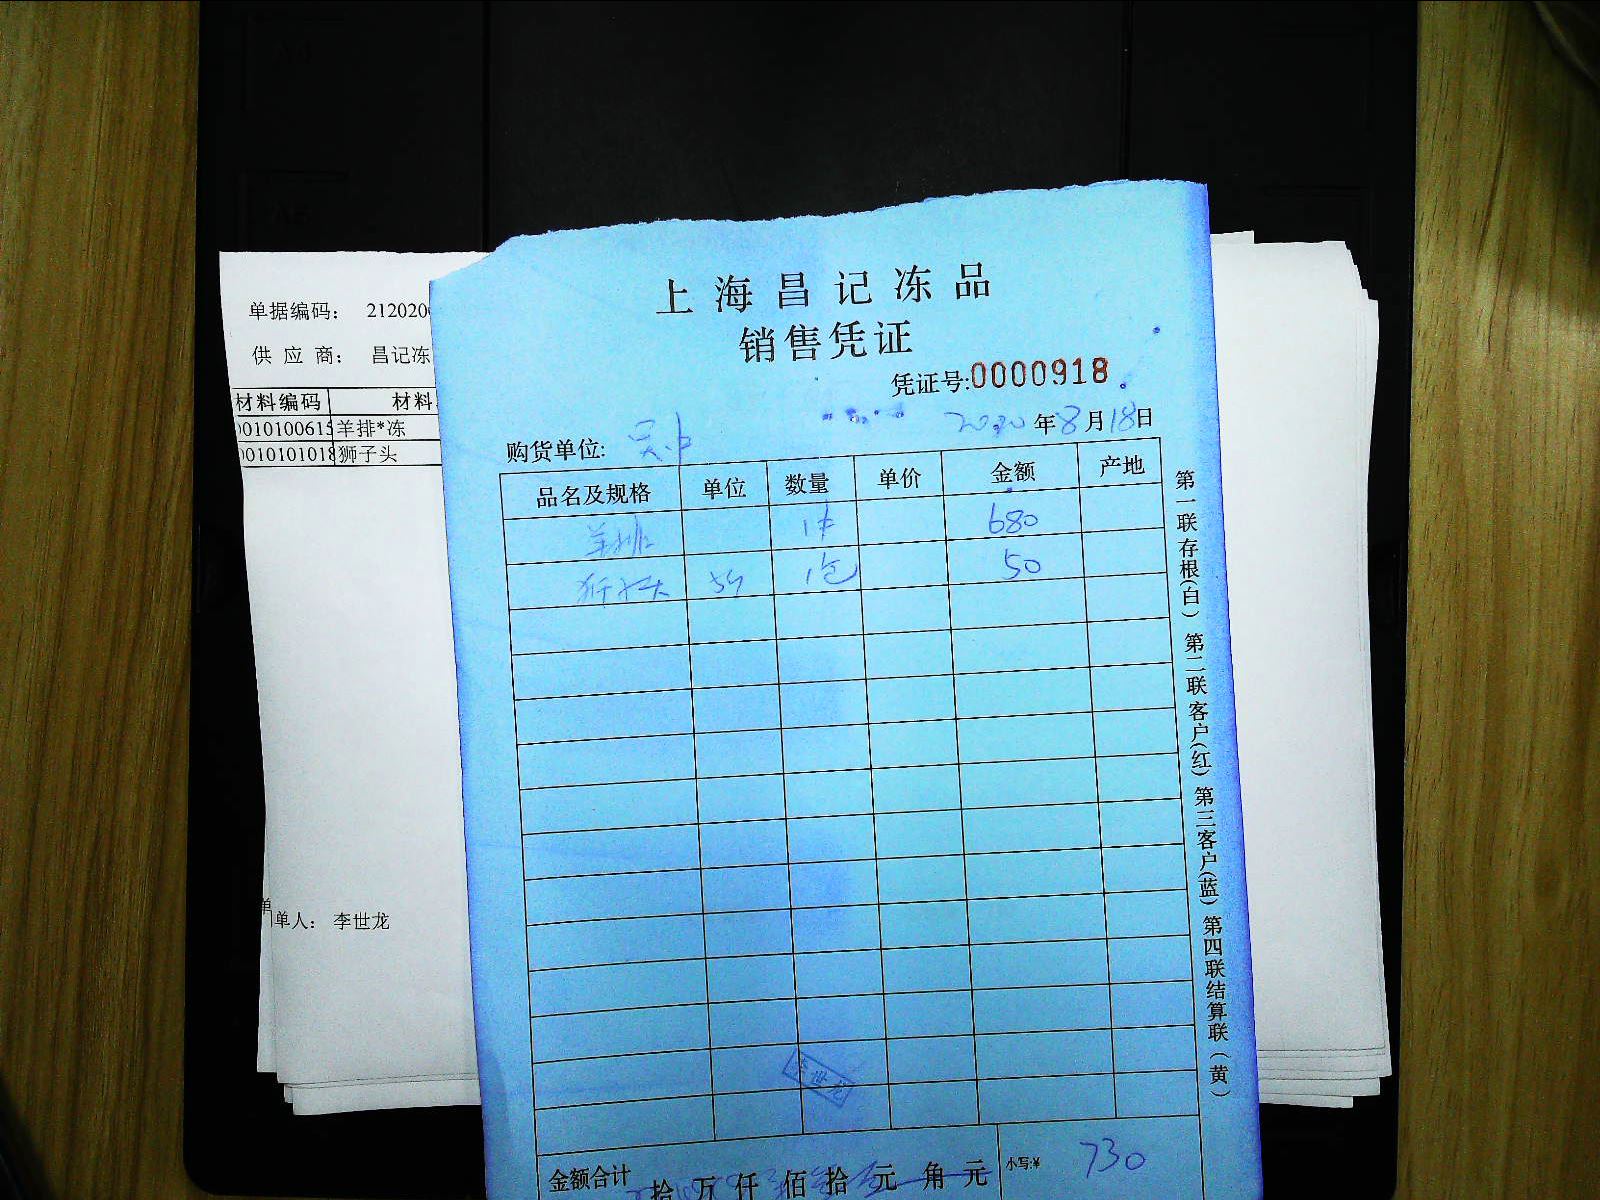 单据编码： 212020
供 应 商： 昌记冻
材料编码 材料
010100615 羊排*冻
010101018 狮子头
单人： 李世龙
上海昌记冻品
销售凭证
凭证号:0000918
2020年8月18日
购货单位: 吴中
品名及规格 单位 数量 单价 金额 产地
羊排 1件 680
狮子头 1包 50
李世龙
金额合计 拾 万 仟 佰 拾 元 角 元 小写:¥ 730
第一联存根(白) 第二联客户(红) 第三客户(蓝) 第四联结算联(黄)